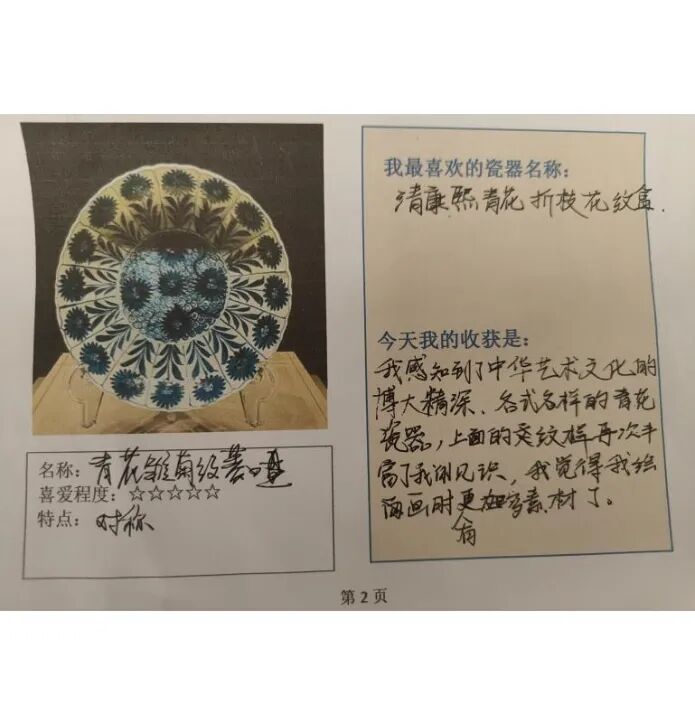 名称：青花雏菊纹
喜爱程度：☆☆☆☆☆
特点：对称
我最喜欢的瓷器名称：
清康熙青花折枝花纹盒.
今天我的收获是：
我感知到了中华艺术文化的
博大精深、各式各样的青花
瓷器，上面的纹样再次丰
富了我的见识，我觉得我绘
画时更有素材了。
第 2 页